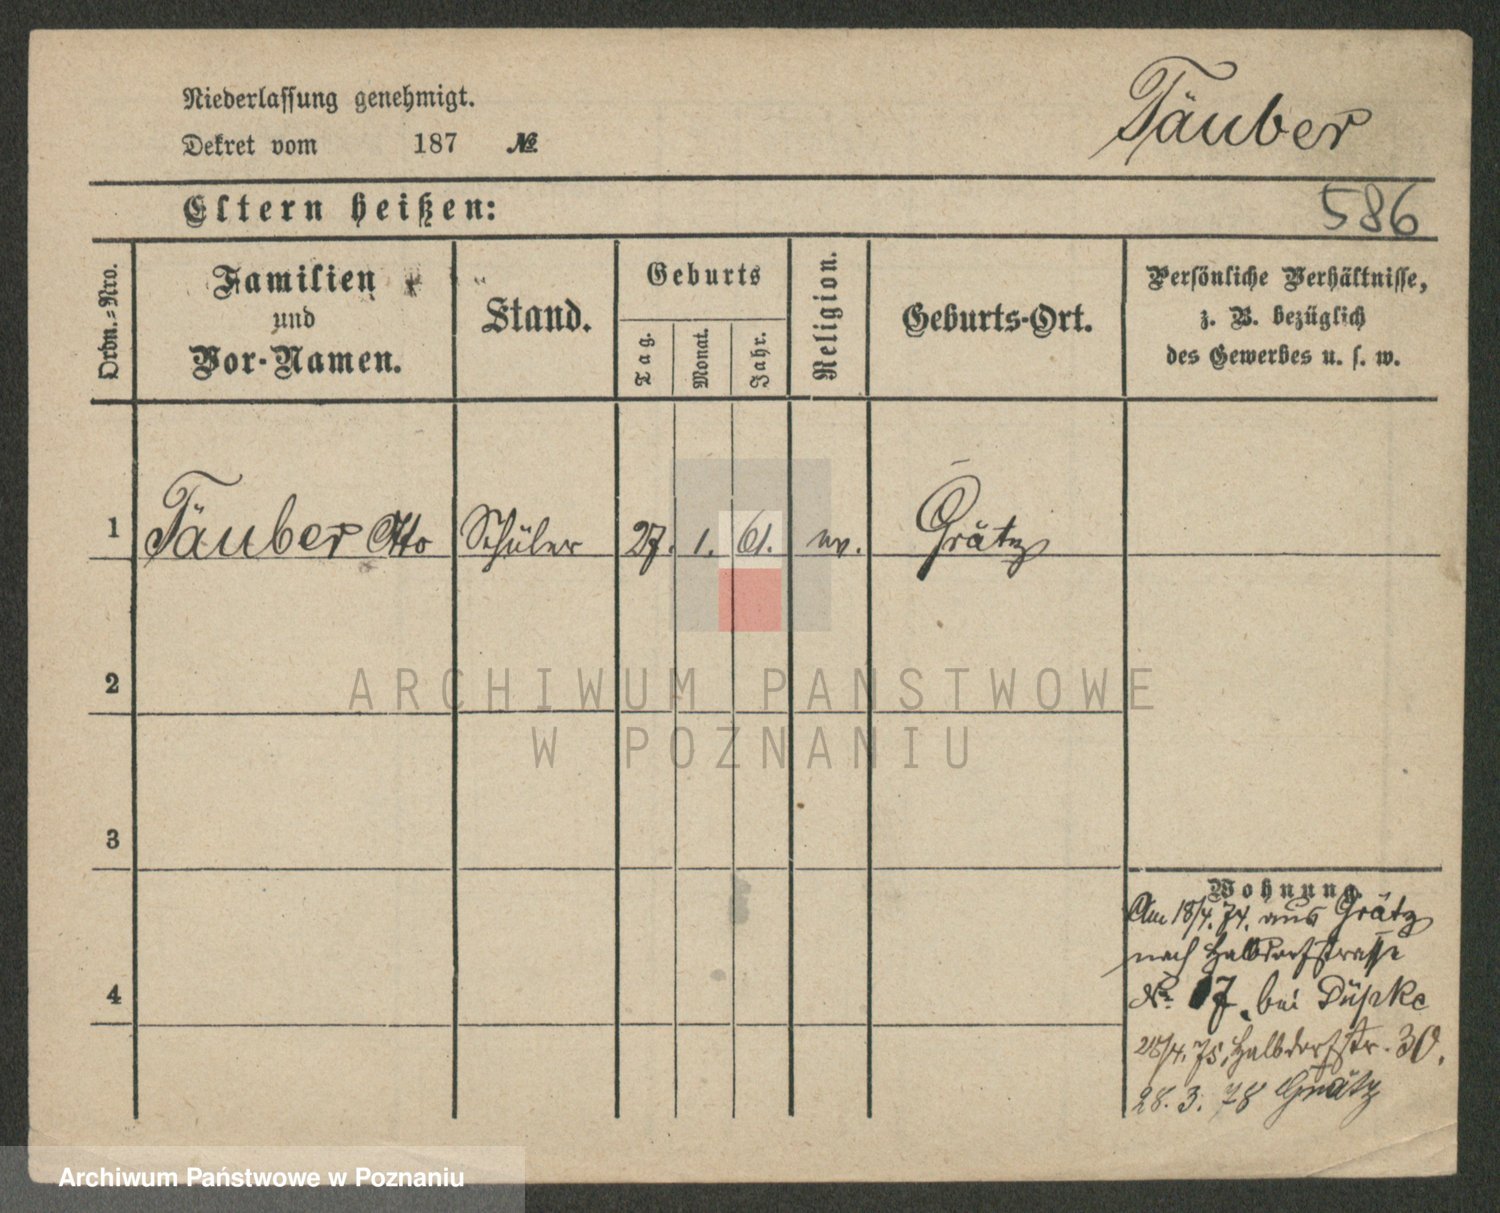 Niederlassung genehmigt.
Dekret vom 187 №
Täuber
Eltern heißen:
586
Ordn.-Nro.
Familien
und
Vor-Namen.
Stand.
Geburts
Tag.
Monat.
Jahr.
Religion.
Geburts-Ort.
Persönliche Verhältnisse,
z. B. bezüglich
des Gewerbes u. s. w.
1 Täuber Otto Schüler 27. 1. 61. ev. Grätz
2
ARCHIWUM PAŃSTWOWE
W POZNANIU
3
4
Wohnung.
Am 18/4. 74. aus Grätz
nach Halbdorfstrasse
No 17. bei
/4. 75, Halbdorfstr. 30.
28. 3. 78 Grätz
Archiwum Państwowe w Poznaniu